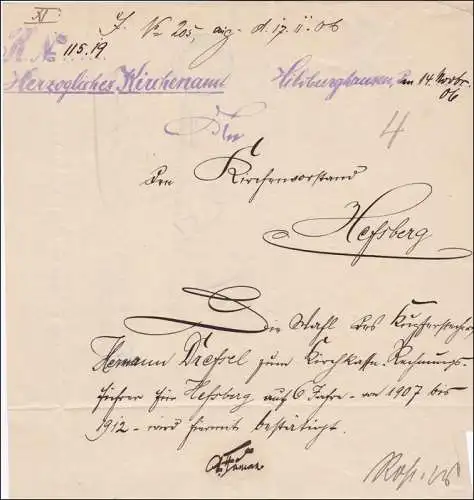 XI
J. No 205, eing. d. 17. 11. 06
K. No 115.19
Herzogliches Kirchenamt
Hildburghausen, den 14. Novbr. 06
4
An
den Kirchenvorstand
Heßberg
Die Wahl des Kupferstechers
Hermann Dressel zum Kirchkasse-Rechnungs-
führer für Heßberg auf 6 Jahre - von 1907 bis
1912 - wird hiermit bestätigt.